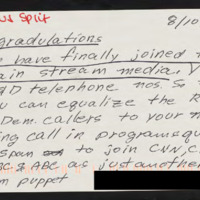 us Split
8/10
gradulations
have finally joined t
ain stream media, Y
D telephone nos. So
u can equalize the R
Dem. callers to your m
ing call in programs qu
Span to join CNN, C
C & ABC as just another
m puppet